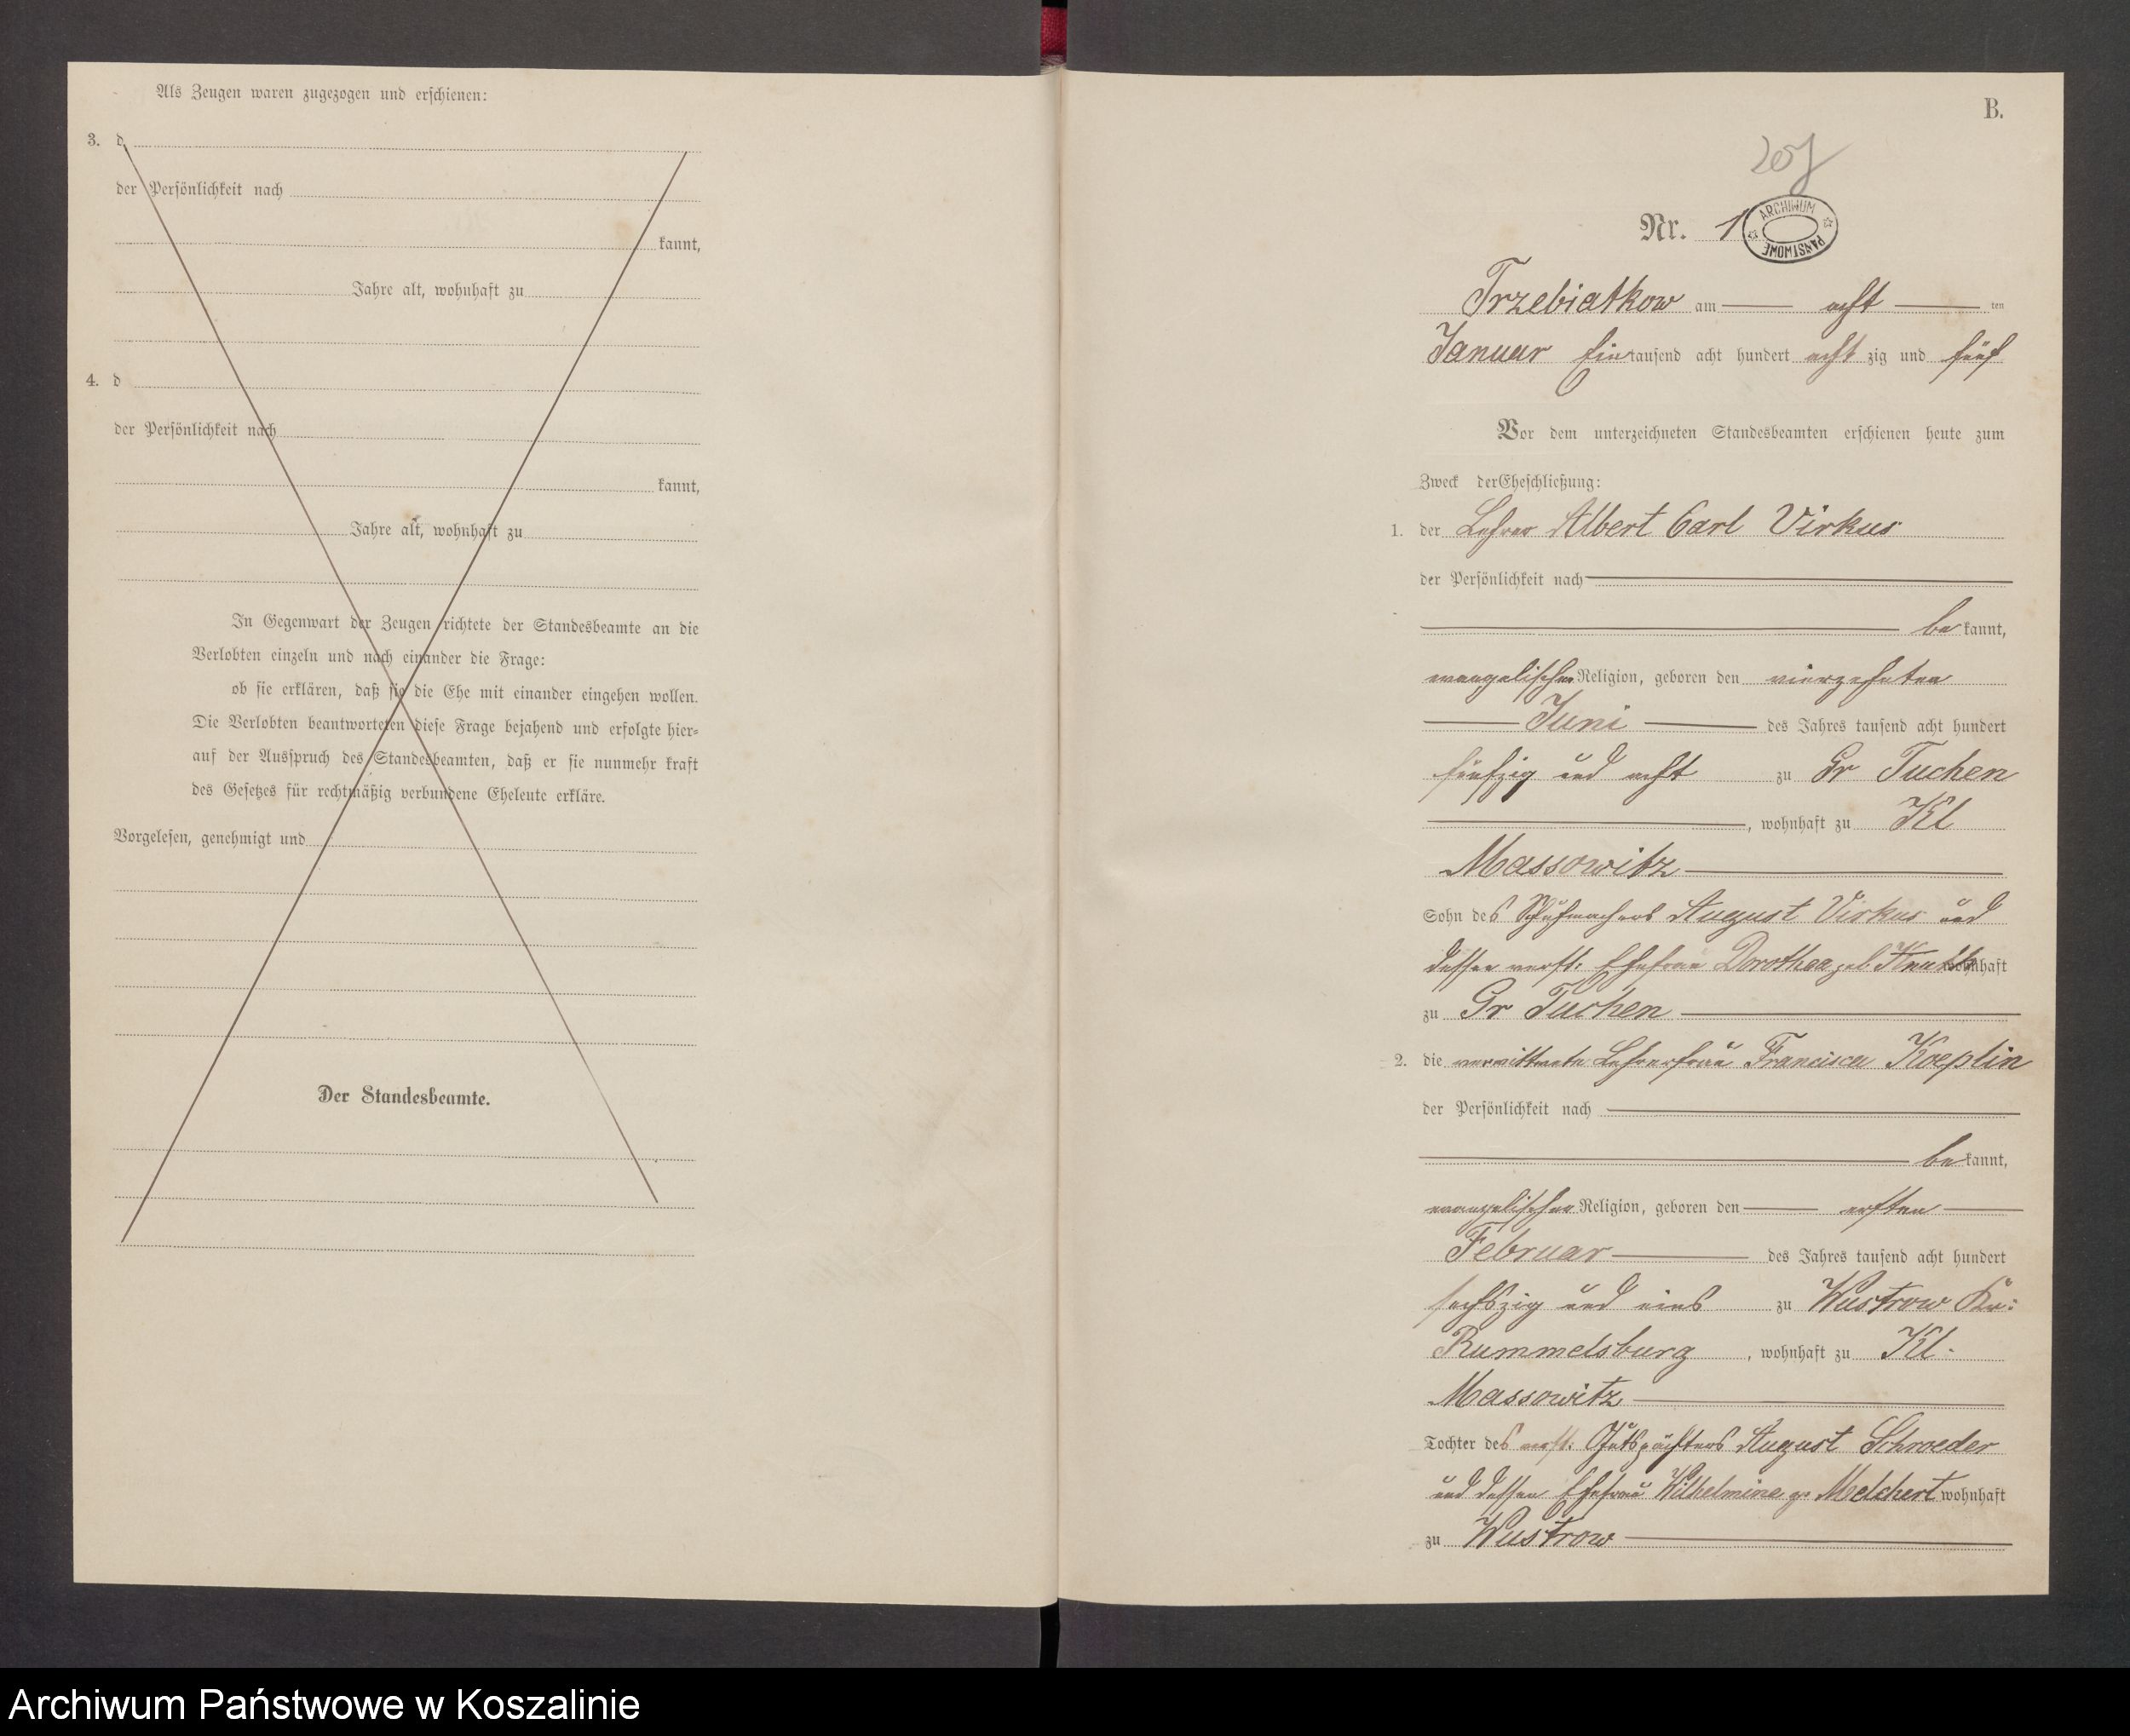 Als Zeugen waren zugezogen und erschienen:
3. d
der Persönlichkeit nach
kannt,
Jahre alt, wohnhaft zu
4. d
der Persönlichkeit nach
kannt,
Jahre alt, wohnhaft zu
In Gegenwart der Zeugen richtete der Standesbeamte an die
Verlobten einzeln und nach einander die Frage:
ob sie erklären, daß sie die Ehe mit einander eingehen wollen.
Die Verlobten beantworteten diese Frage bejahend und erfolgte hier-
auf der Ausspruch des Standesbeamten, daß er sie nunmehr kraft
des Gesetzes für rechtmäßig verbundene Eheleute erkläre.
Vorgelesen, genehmigt und
Der Standesbeamte.
B.
Nr. 1
ARCHIWUM PAŃSTWOWE
Trzebiatkow am acht ten
Januar Eintausend acht hundert acht zig und fünf
Vor dem unterzeichneten Standesbeamten erschienen heute zum
Zweck der Eheschließung:
1. der Lehrer Albert Carl Virkus
der Persönlichkeit nach
be kannt,
evangelischer Religion, geboren den vierzehnten
Juni des Jahres tausend acht hundert
fünfzig und acht zu Gr Tuchen
, wohnhaft zu Kl
Massowitz
Sohn des Schuhmachers August Virkus und
dessen verst. Ehefrau Dorothea geb. Knuth wohnhaft
zu Gr Tuchen
2. die verwittwete Lehrerfrau Francisca Koeplin
der Persönlichkeit nach
be kannt,
evangelischer Religion, geboren den ersten
Februar des Jahres tausend acht hundert
sechszig und eins zu Wustrow Kr:
Rummelsburg, wohnhaft zu Kl.
Massowitz
Tochter des verst. Gutspächters August Schroeder
und dessen Ehefrau Wilhelmine g. Melchert wohnhaft
zu Wustrow
Archiwum Państwowe w Koszalinie